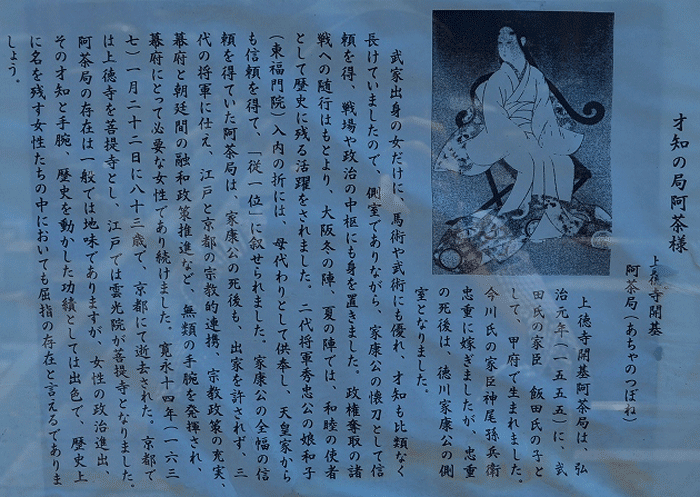 才知の局阿茶様
上徳寺開基
阿茶局（あちゃのつぼね）
上徳寺開基阿茶局は、弘
治元年（一五五五）に、武
田氏の家臣　飯田氏の子と
して、甲府で生まれました。
今川氏の家臣神尾孫兵衛
忠重に嫁ぎましたが、忠重
の死後は、徳川家康公の側
室となりました。
武家出身の女だけに、馬術や武術にも優れ、才知も比類なく
長けていましたので、側室でありながら、家康公の懐刀として信
頼を得、戦場や政治の中枢にも身を置きました。政権奪取の諸
戦への随行はもとより、大阪冬の陣、夏の陣では、和睦の使者
として歴史に残る活躍をされました。二代将軍秀忠公の娘和子
（東福門院）入内の折には、母代わりとして供奉し、天皇家から
も信頼を得て、「従一位」に叙せられました。家康公の全幅の信
頼を得ていた阿茶局は、家康公の死後も、出家を許されず、三
代の将軍に仕え、江戸と京都の宗教的連携、宗教政策の充実、
幕府と朝廷間の融和政策推進など、無類の手腕を発揮され、
幕府にとって必要な女性であり続けました。寛永十四年（一六三
七）一月二十二日に八十三歳で、京都にて逝去された。京都で
は上徳寺を菩提寺とし、江戸では雲光院が菩提寺となりました。
阿茶局の存在は一般では地味でありますが、女性の政治進出、
その才知と手腕、歴史を動かした功績としては出色で、歴史上
に名を残す女性たちの中においても屈指の存在と言えるでありま
しょう。